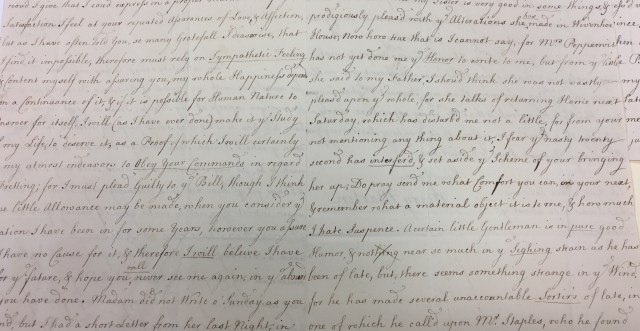 would I give that I could express on a
Satisfaction I feel at your repeated Assurances of Love, & Affection,
but as I have often told you, so many Gratefull Ideas arise, that
I find it impossible, therefore must rely on Sympathetic Feeling
& content myself with assuring you, my whole Happiness
on a continuance of it; & if it is possible for Human Nature to
answer for itself, I will (as I have ever done) make it ye Study
of my Life, to deserve it; as a Proof of which I will certainly
my utmost endeavors to Obey Your Commands in regard
fretting; for I must plead Guilty to ye Bill, though I think
little Allowance may be made, when you consider ye
ation I have been in for some Years, however you assure
I have no Cause for it; & therefore I will believe I have
for ye Future, & hope you will never see me again, in ye
you have done. Madam did not Write o' Sunday, as you
nd, but I had a short Letter from her last Night; in
Sister is very good in some things, &
prodigiously pleas'd with ye Alterations she made in
House; Now how true that is I cannot say, for Mrs
has not yet done me ye Honor to write to me, but from ye
she said to my Father, I should think she was not vastly
pleas'd upon ye whole, for she talks of returning Home next
Saturday, which has disturb'd me not a little, for from your
not mentioning any thing about it, I fear ye nasty twenty
second has interfer'd, & set aside ye Scheme of your bringing
her up; Do pray send me what Comfort you can in your next,
& remember what a material object it is to me, & how much
I hate Suspence. A certain little Gentleman is in pure good
Humor, & nothing near so much in ye Sighing strain as he has
been of late, but, there seems something strange in ye Wind,
for he has made several unaccountable Sorties of late, in
one of which he call'd upon Mr. Staples, who he found